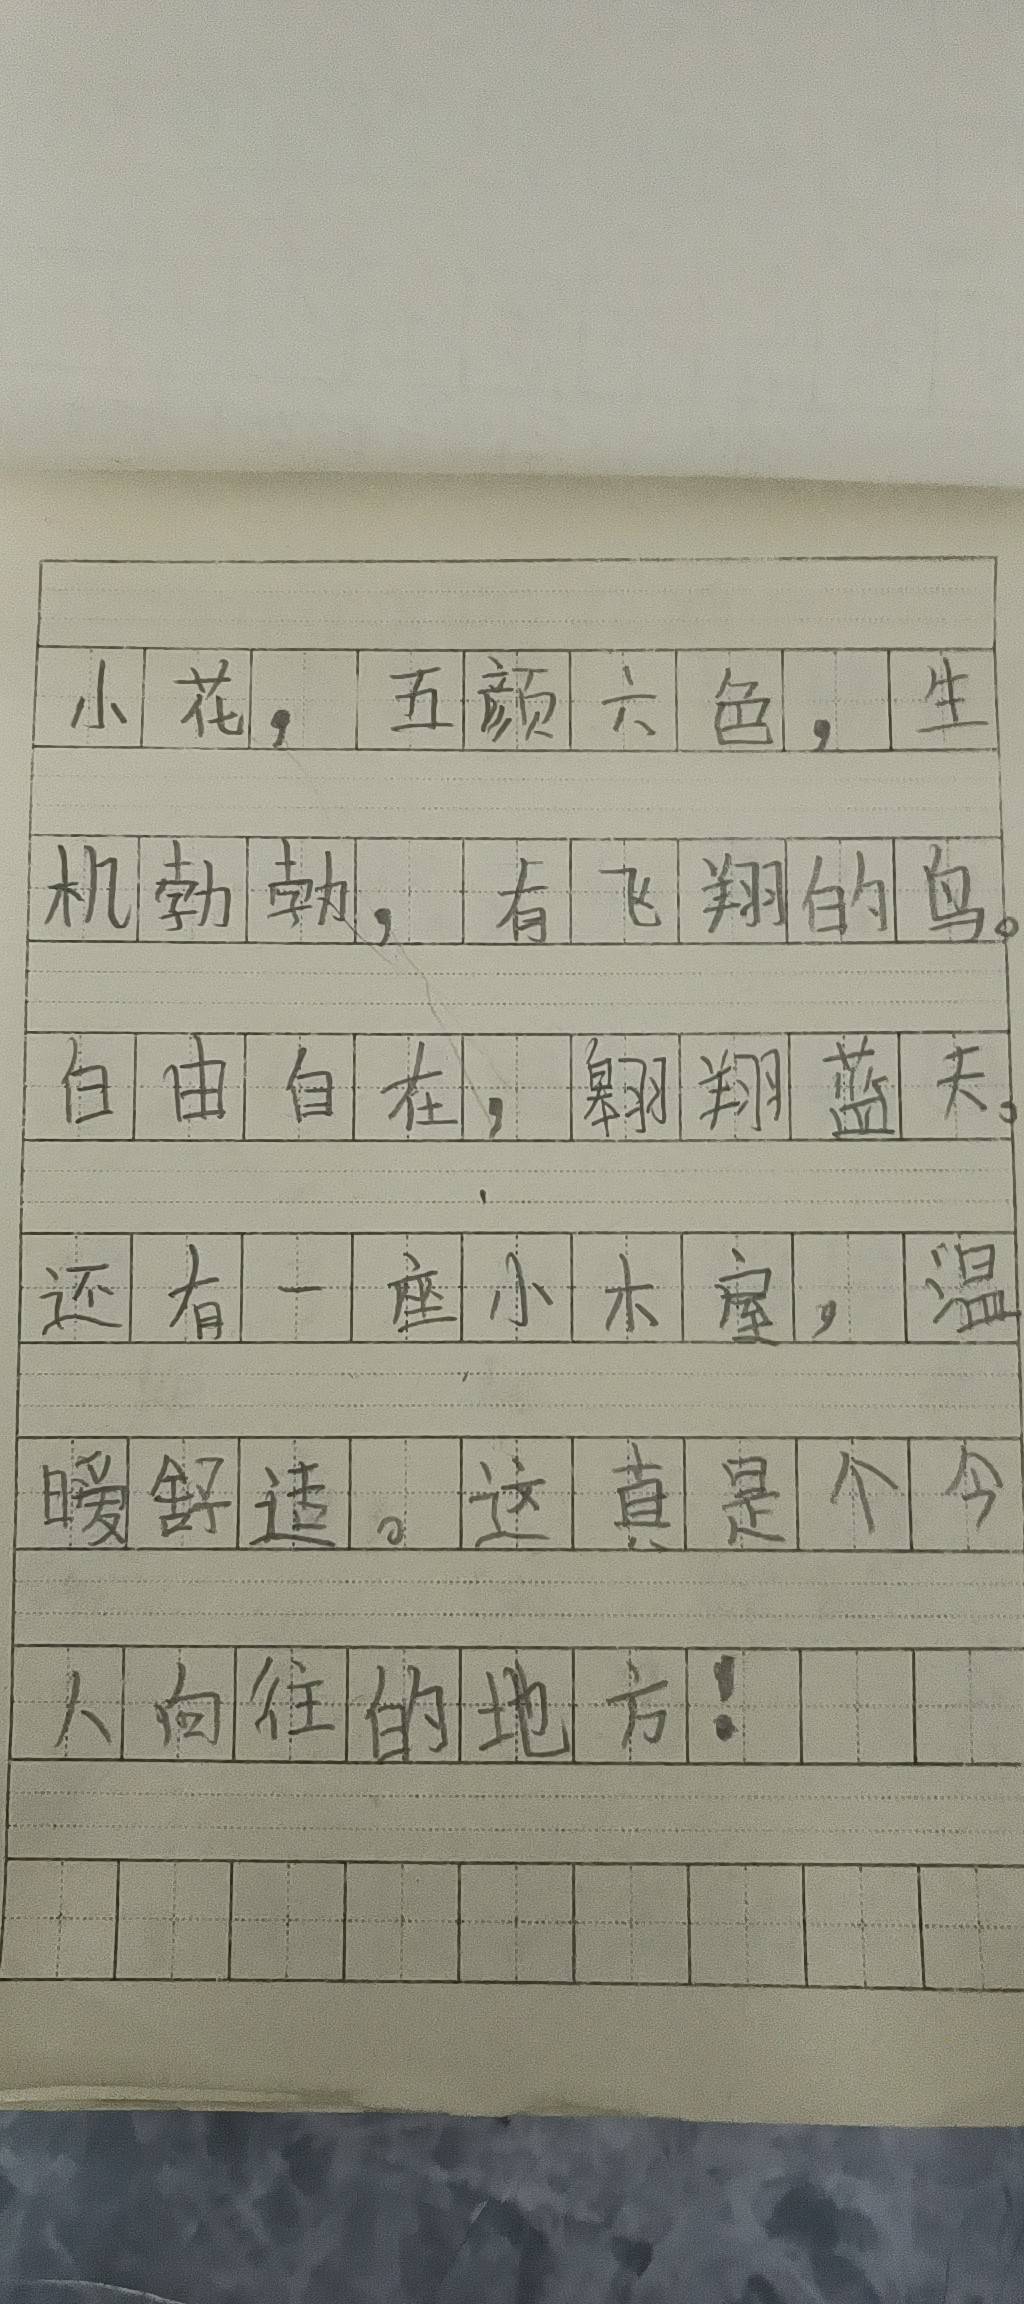 小花，五颜六色，生
机勃勃，有飞翔的鸟。
自由自在，翱翔蓝天。
还有一座小木屋，温
暖舒适。这真是个令
人向往的地方！